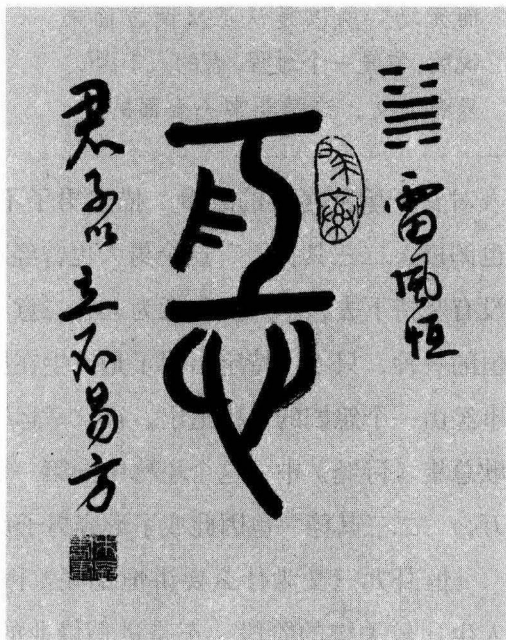 ䷟雷風恒
恆
君子以立不易方